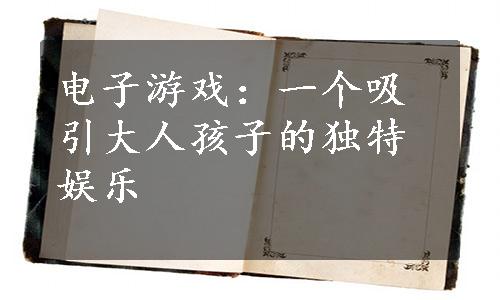 电子游戏：一个吸
引大人孩子的独特
娱乐